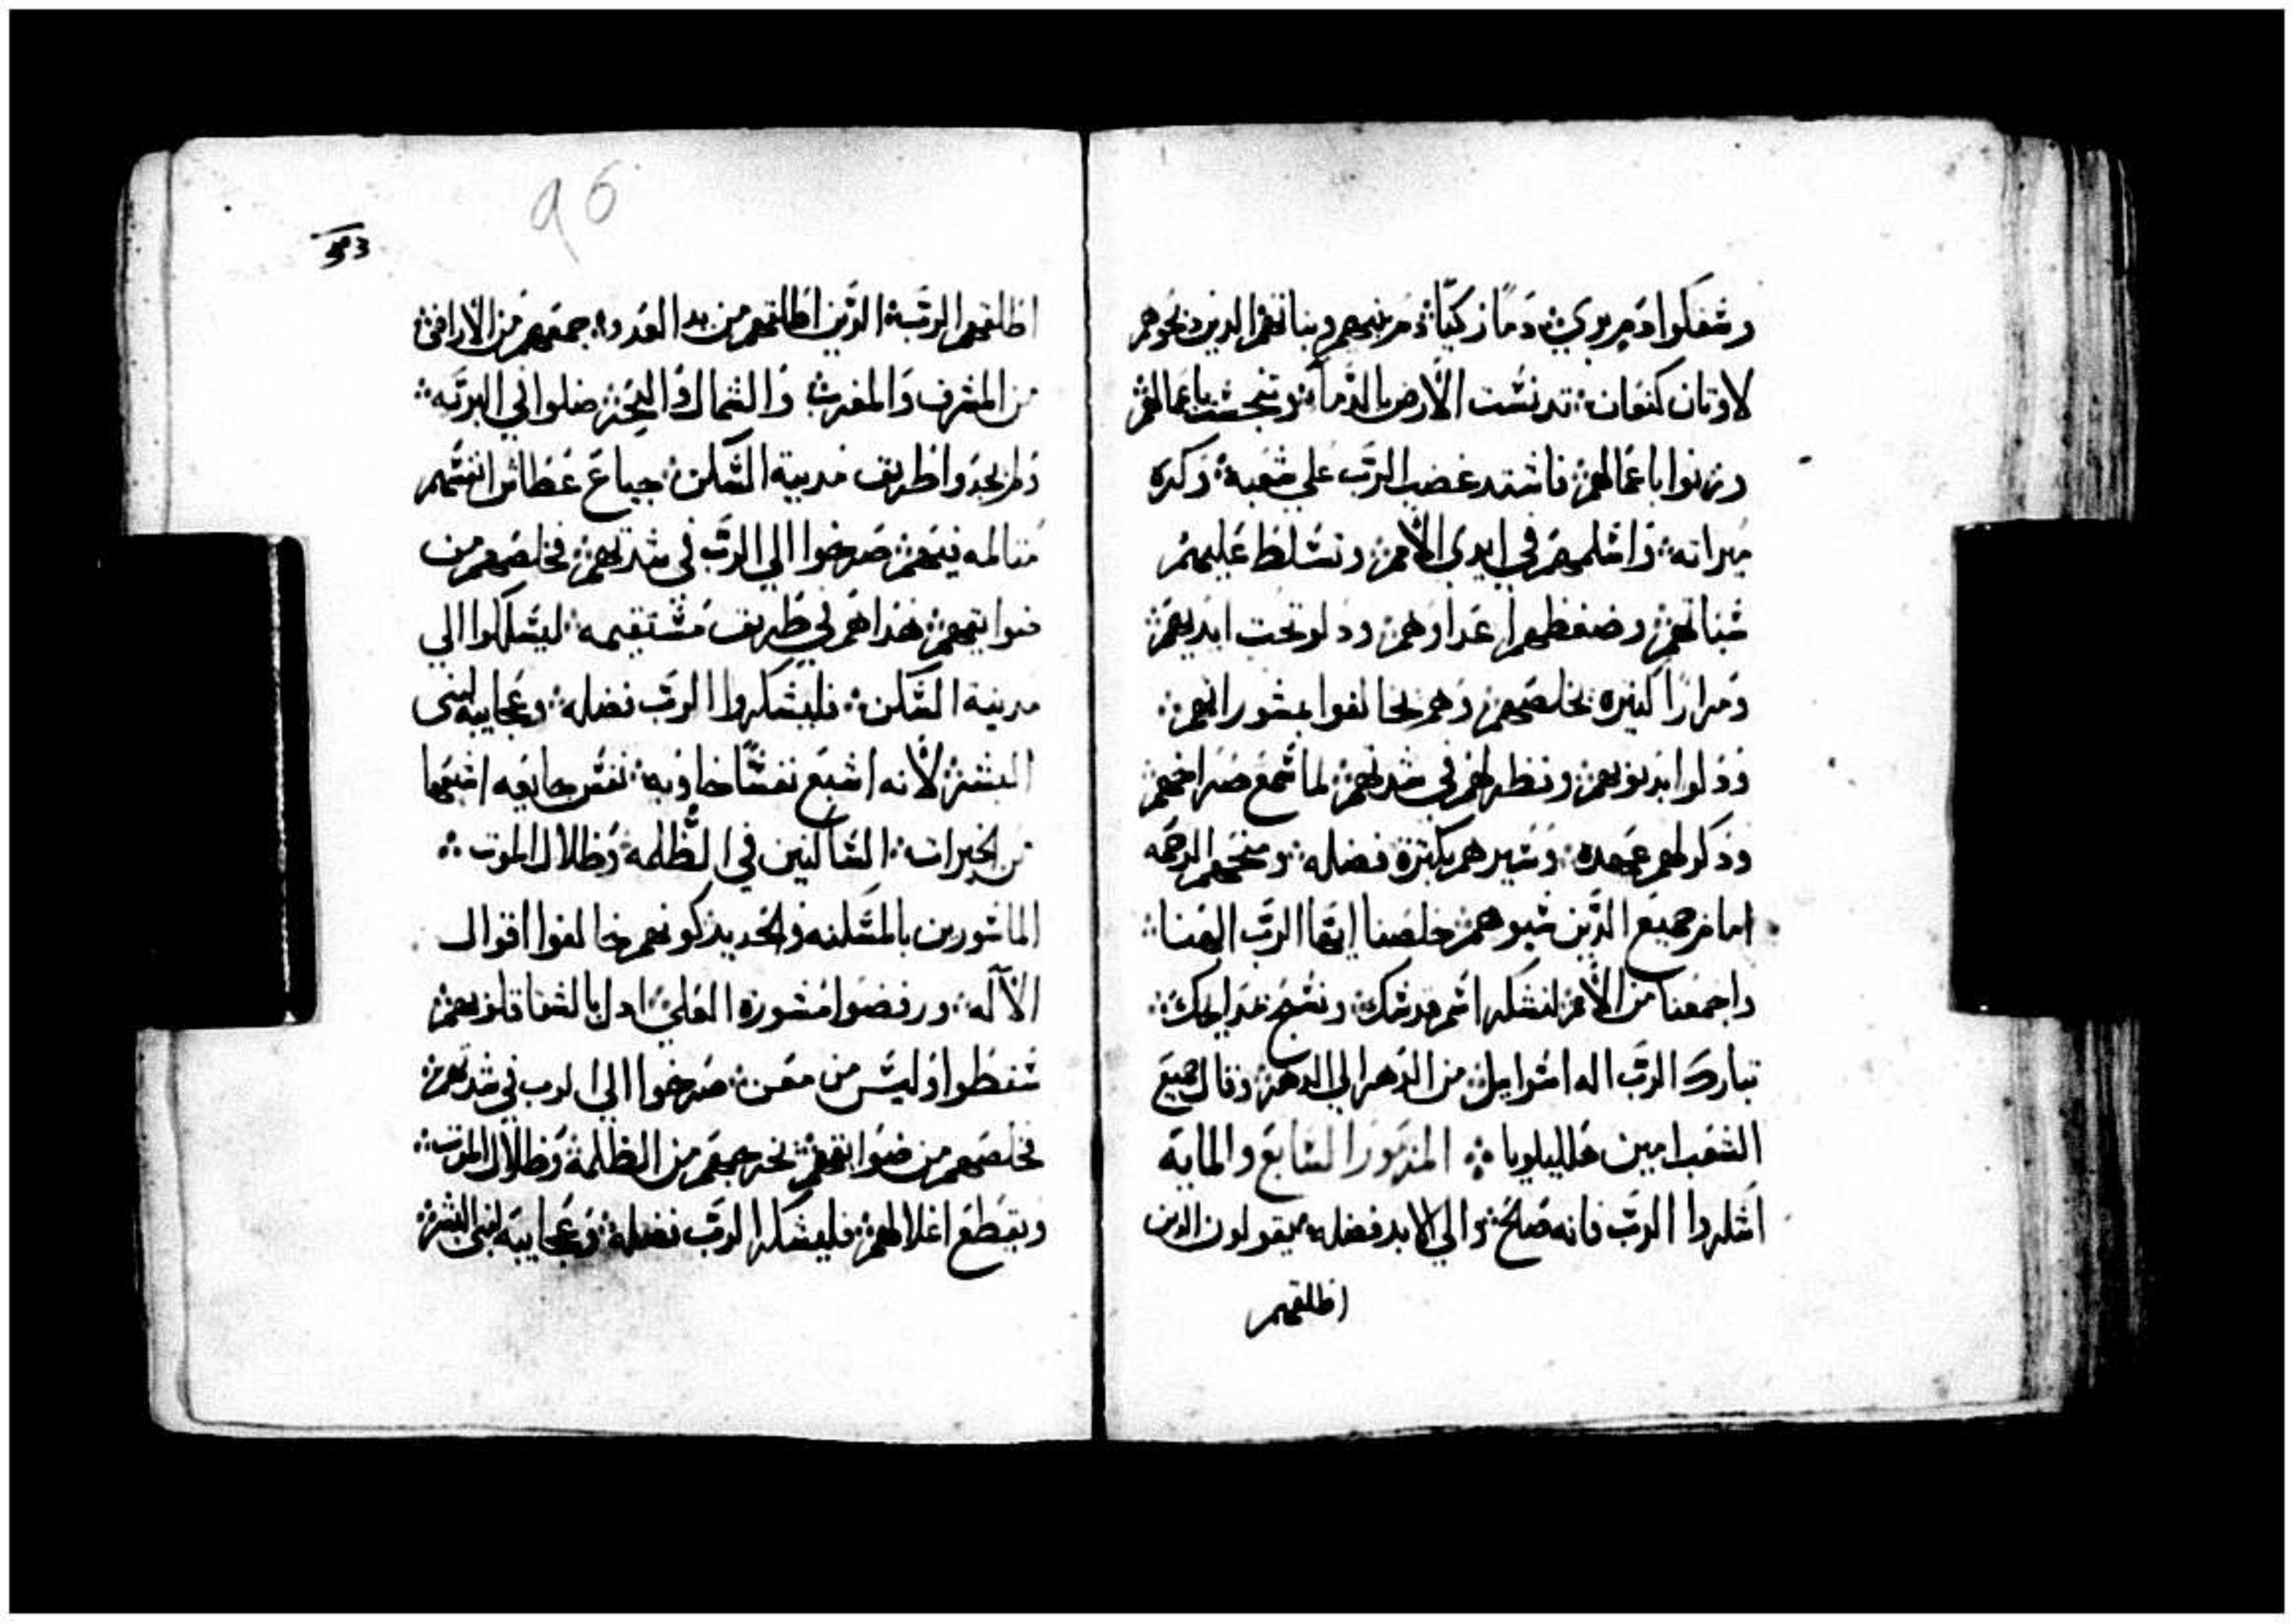 وسفكوا دم بري ❖ دمًا زكيًا ❖ دم بنيهم وبناتهم الذين ذبحوهم
لاوتان كنعان ❖ تدنست الارض بالدمآ ❖ وتنجست باعمالهم
وزنوا باعمالهم ❖ فاشتد غضب الرب علي شعبه ❖ وكره
ميراته ❖ واسلمهم في ايدي الامم ❖ وتسلط عليهم
شناتهم ❖ وضغطهم اعداوهم ❖ ودلو تحت ايديهم ❖
ومرارًا كتيره يخلصهم ❖ وهم يخالفوا بمشوراتهم ❖
وذلوا بذنوبهم ❖ ونظرهم في شدتهم ❖ لما سمع صراخهم ❖
وذكر لهم عهده ❖ وسيرهم بكترة فضله ❖ ومنحهم الرحمه
امام جميع الذين سبوهم ❖ خلصنا ايها الرب الهنا ❖
واجمعنا من الامم ❖ لنشكر اسم قدسك ❖ ونسبح بمدايحك ❖
تبارك الرب اله اسرايل ❖ من الدهر الي الدهر ❖ وقال جميع
الشعب امين هلليلويا ❖ المزمور السابع والمايه
اشكروا الرب فانه صالح ❖ والي الابد فضله ❖ يقولون الذين
اطلقهم
96
اطلقهم الرب ❖ الذين اطلقهم من يد العدو ❖ جمعهم من الاراضي ❖
من المشرق والمغرب ❖ والشمال والبحر ❖ ضلوا في البريه ❖
ولم يجدوا طريق مدينة السكن ❖ جياع عطاش انفسهم
متالمه فيهم ❖ صرخوا الي الرب في شدتهم ❖ فخلصهم من
ضوايقهم ❖ هداهم في طريق مستقيمه ❖ ليسلكوا الي
مدينة السكن ❖ فليشكروا الرب فضله ❖ وعجايبه لبني
البشر ❖ لانه اشبع نفسًا خاويه ❖ نفس جايعه اشبعها
من الخيرات ❖ الساكنين في الظلمه وظلال الموت ❖
الماسورين بالمسكنه والحديد ❖ كونهم خالفوا اقوال
الآله ❖ ورفضوا مشورة العلي ❖ ادل بالشقا قلوبهم ❖
سقطوا وليس من معين ❖ صرخوا الي الرب في شدتهم ❖
فخلصهم من ضوايقهم ❖ يخرجهم من الظلمة وظلال الموت ❖
ويقطع اغلالهم ❖ فليشكر الرب فضله ❖ وعجايبه لبني البشر ❖